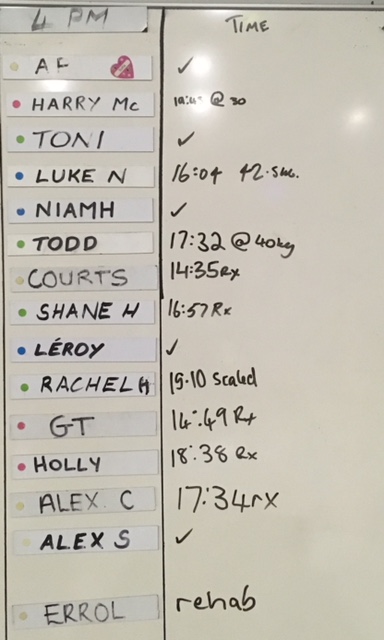 4 PM TIME
AF ✓
HARRY Mc @ 30
TONI ✓
LUKE N 16:04
NIAMH ✓
TODD 17:32 @ 40kg
COURTS 14:35 Rx
SHANE H 16:57 Rx
LÉROY ✓
RACHEL H 19.10 Scaled
GT 14:49 Rx
HOLLY 18:38 Rx
ALEX. C 17:34rx
ALEX S ✓
ERROL rehab